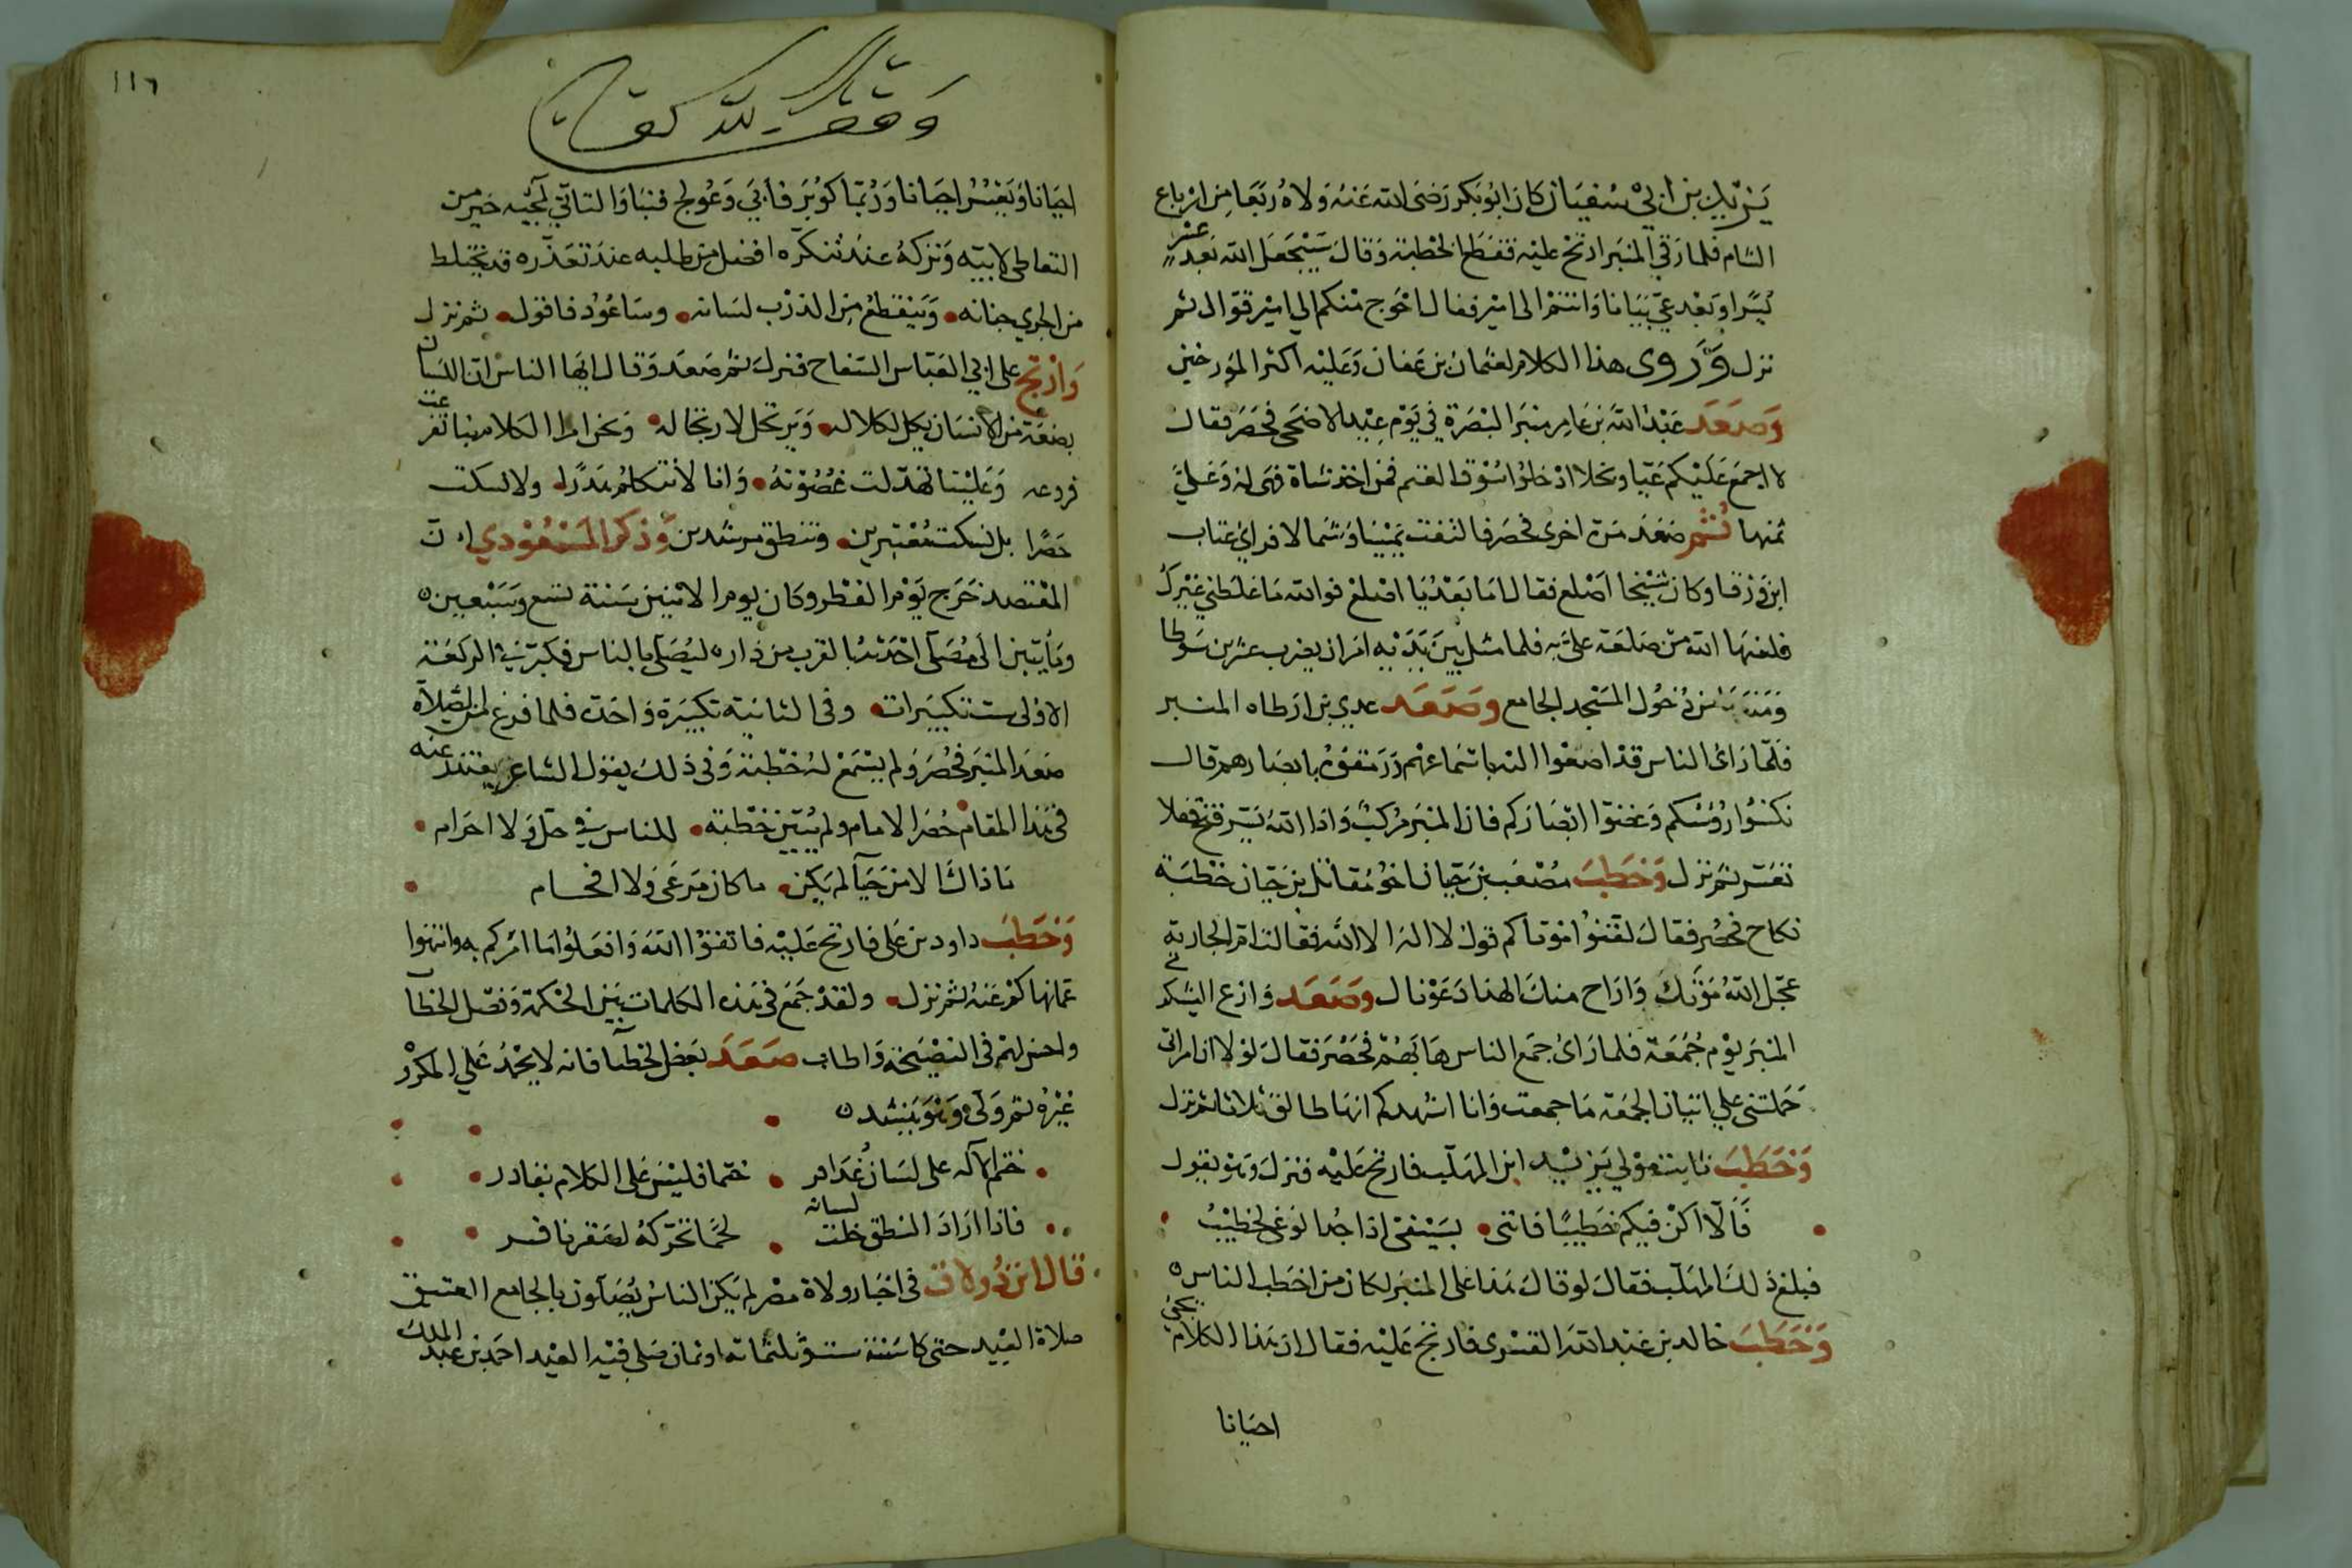 يزيد بن ابي سفيان كان ابو بكر رضي الله عنه ولاه ربعا من ارباع
الشام فلما رقي المنبر ارتج عليه فقطع الخطبة وقال سيجعل الله بعد عسر
يسرا وبعد عي بيانا وانتم الى امير فعال احوج منكم الي امير قوال ثم
نزل وروى هذا الكلام لعثمان بن عفان وعليه اكثر المورخين
وصعد عبد الله بن عامر منبر البصرة في يوم عيد الاضحى فحصر فقال
لا اجمع عليكم عيا وبخلا ادخلوا سوق الغنم فمن اخذ شاة فهى له وعلي
ثمنها ثم صعد مرة اخرى فحصر فالتفت يمينا وشمالا فراي عتاب
ابن ورقا وكان شيخا اصلع فقال اما بعد يا اصلع فوالله ما غلطني غيرك
فلعنها الله من صلعة علي به فلما مثل بين يديه امر ان يضرب عشرين سوطا
ومنعه من دخول المسجد الجامع وصعد عدي بن ارطاه المنبر
فلما راى الناس قد اصغوا اليه باسماعهم ورمقوه بابصارهم قال
نكسوا رؤسكم وغضوا ابصاركم فان المنبر مركب واذا الله يسر فتح قفلا
تعسر ثم نزل وخطب مصعب بن حيان اخو مقاتل بن حيان خطبة
نكاح فحصر فقال لقنوا موتاكم قول لا اله الا الله فقالت ام الجارية
عجل الله موتك واراح منك الهذا دعوناك وصعد وازع اليشكري
المنبر يوم جمعة فلما راى جمع الناس هابهم فحصر فقال لولا ان امراتي
حملتني علي اتيان الجمعة ما جمعت وانا اشهدكم انها طالق ثلاثا ثم نزل
وخطب ثابت مولي يزيد ابن المهلب فارتج عليه فنزل وهو يقول
فالا اكن فيكم خطيبا فانني بسيفي اذا جد الوغي لخطيب
فبلغ ذلك المهلب فقال لو قال هذا على المنبر لكان من اخطب الناس
وخطب خالد بن عبد الله القسرى فارتج عليه فقال ان هذا الكلام يجئ
احيانا
١١٦
وقف لله تعالى
احيانا ويعسر احيانا وربما كوبر فأبي وعولج فنبا والتاتي لمجيه خير من
التعاطي لابيه وتركه عند تنكره افضل من طلبه عند تعذره قد يختلط
من الجري جنانه وينقطع من الذرب لسانه وساعود فاقول ثم نزل
وارتج على ابي العباس السفاح فنزل ثم صعد وقال ايها الناس ان اللسان
بضعة من الانسان يكل لكلاله ويرتجل لارتجاله ونحن امرا الكلام بنا تفرعت
فروعه وعلينا تهدلت غصونه وانا لا نتكلم هدرا ولا نسكت
حصرا بل نسكت معتبرين وننطق مرشدين وذكر المسعودي ان
المعتضد خرج يوم الفطر وكان يوم الاثنين سنة تسع وسبعين
ومأيتين الى مصلى احدثه بالقرب من داره ليصلي بالناس فكبر في الركعة
الاولى ست تكبيرات وفى الثانية تكبيرة واحدة فلما فرغ من الصلاة
صعد المنبر فحصر ولم يسمع له خطبة وفى ذلك يقول الشاعر يعتذر عنه
فى هذا المقام حصر الامام ولم يبين خطبة للناس في حل ولا احرام
ما ذاك الا من حيآ لم يكن ما كان من عي ولا افحام
وخطب داود بن على فارتج عليه فاتقوا الله وافعلوا ما امركم به وانتهوا
عما نهاكم عنه ثم نزل ولقد جمع في هذه الكلمات بين الحكمة وفصل الخطا
واحتز لهم فى النصيحة واطاب صعد بعض الخطبا فانه لا يحمد علي المكروه
غيره ثم ولى وهو ينشد
ختم الاله على لسان عدافر ختما فليس على الكلام بقادر
فاذا اراد النطق خلت لسانه لحما تحركه لصقر ناقر
قال ابن زولاق فى اخبار ولاة مصر لم يكن الناس يصلون بالجامع العتيق
صلاة العيد حتى كا سنة ست وثلثماىة او ثمان صلى فيه العيد احمد بن عبد الملك